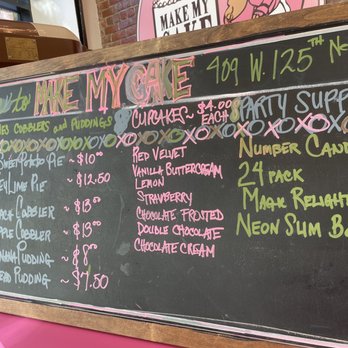 MAKE MY CAKE
to MAKE MY CAKE 409 W. 125TH
COBBLERS AND PUDDINGS
SWEET POTATO PIE ~ $10.00
KEY LIME PIE ~ $12.50
COBBLER ~ $13.00
COBBLER ~ $13.00
PUDDING ~ $8.00
PUDDING ~ $7.50
CUPCAKES ~ $4.00 EACH
RED VELVET
VANILLA BUTTERCREAM
LEMON
STRAWBERRY
CHOCOLATE FROSTED
DOUBLE CHOCOLATE
CHOCOLATE CREAM
PARTY SUPP
NUMBER CAND
24 PACK
MAGIC RELIGHT
NEON SUM B